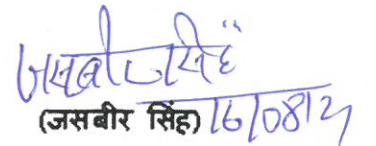 जसबीर सिंह
(जसबीर सिंह) 16/08/24